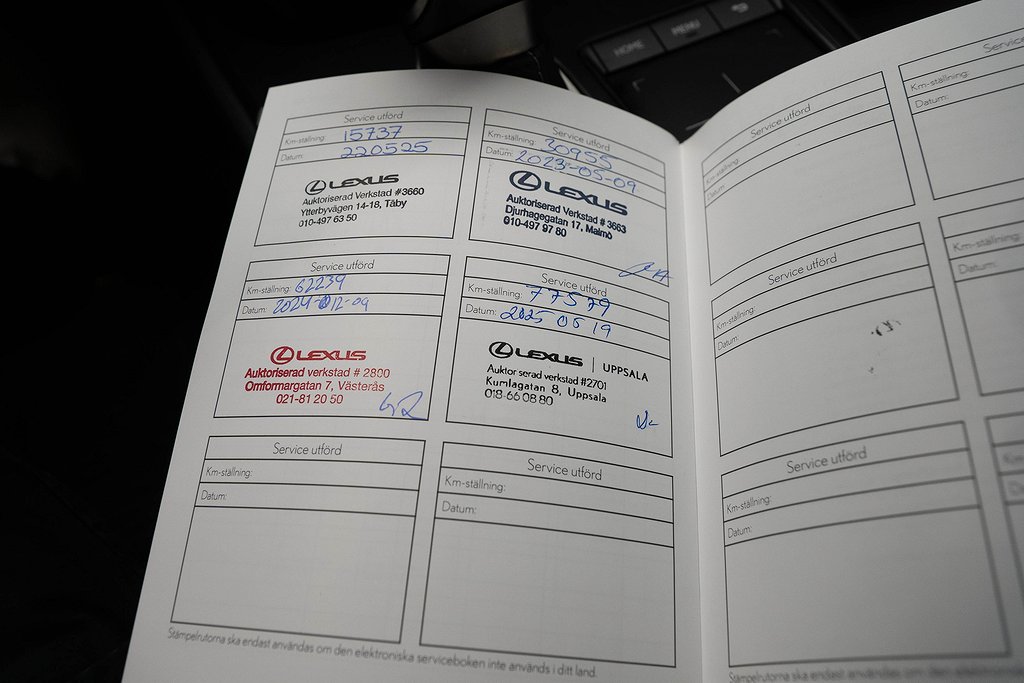 HOME
MENU
Service utförd
Km-ställning: 15737
Datum: 220525
LEXUS
Auktoriserad Verkstad #3660
Ytterbyvägen 14-18, Täby
010-497 63 50
Service utförd
Km-ställning: 30955
Datum: 2023-05-09
LEXUS
Auktoriserad Verkstad # 3663
Djurhagegatan 17, Malmö
010-497 97 80
Service utförd
Km-ställning: 62239
Datum: 2024-012-09
LEXUS
Auktoriserad verkstad # 2800
Omformargatan 7, Västerås
021-81 20 50
Service utförd
Km-ställning: 77579
Datum: 2025 05 19
LEXUS | UPPSALA
Auktor serad verkstad #2701
Kumlagatan 8, Uppsala
018-66 08 80
Service utförd
Km-ställning:
Datum:
Service utförd
Km-ställning:
Datum:
Stämpelrutorna ska endast användas om den elektroniska serviceboken inte används i ditt land.
Service utförd
Km-ställning:
Datum:
Service
Km-ställning:
Datum:
Service utförd
Km-ställning:
Datum:
Km-ställning:
Datum:
Service utförd
Km-ställning:
Datum:
Km-ställning:
Stämpelrutorna ska endast användas om den elektroniska